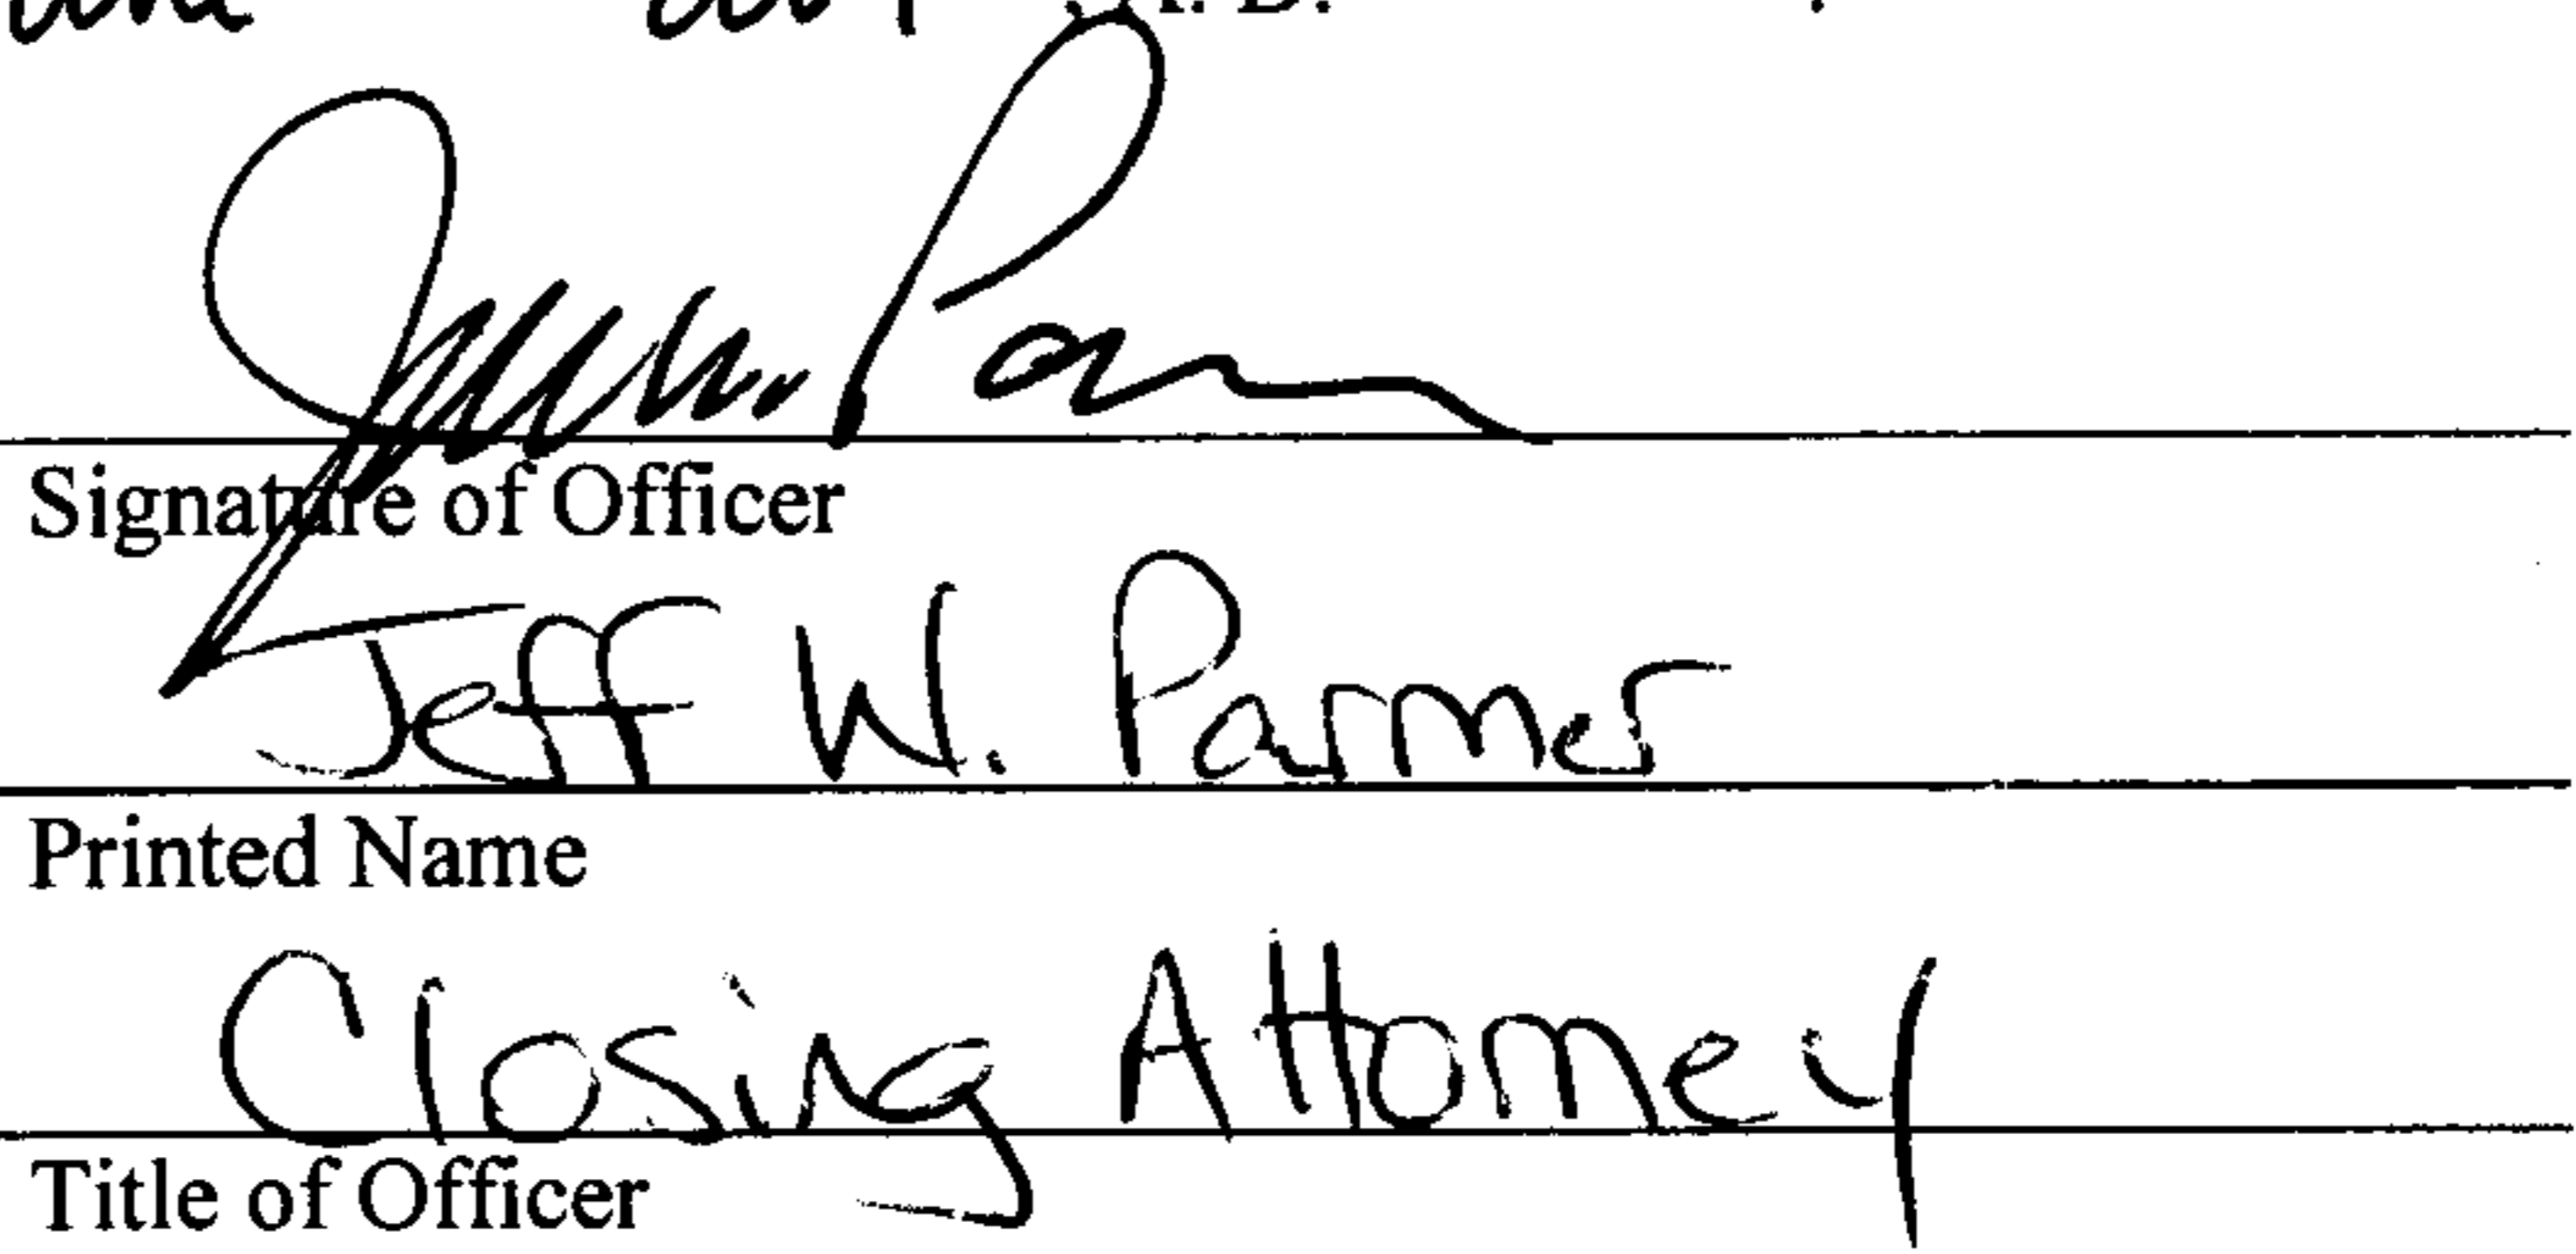 A. D.
Signature of Officer
Jeff W. Parmer
Printed Name
Closing Attorney
Title of Officer